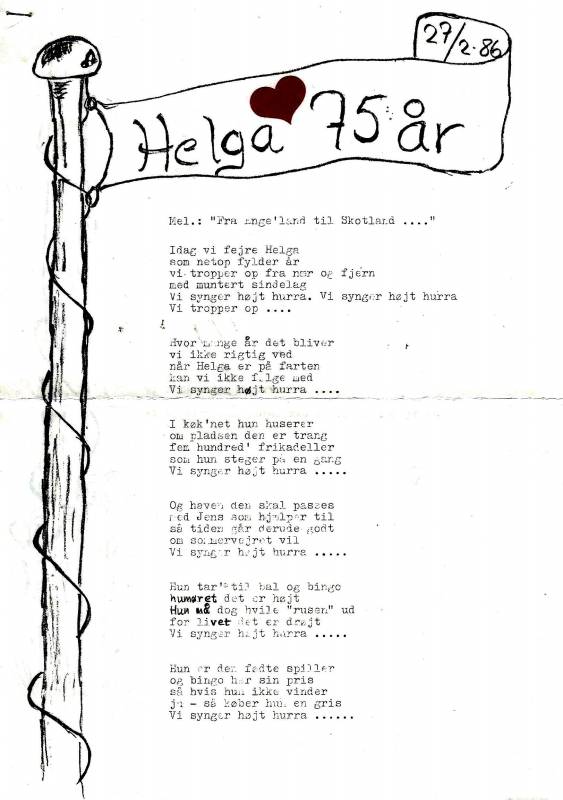 27/2-86
Helga 75 år
Mel.: "Fra Enge'land til Skotland ...."
Idag vi fejre Helga
som netop fylder år
vi tropper op fra nær og fjern
med muntert sindelag
Vi synger højt hurra. Vi synger højt hurra
Vi tropper op ....
Hvor mange år det bliver
vi ikke rigtig ved
når Helga er på farten
kan vi ikke følge med
Vi synger højt hurra ....
I køk'net hun huserer
om pladsen den er trang
fem hundred' frikadeller
som hun steger på en gang
Vi synger højt hurra .....
Og haven den skal passes
med Jens som hjælper til
så tiden går derude godt
om sommervejret vil
Vi synger højt hurra .....
Hun tar' til bal og bingo
humøret det er højt
Hun må dog hvile "rusen" ud
for livet det er drøjt
Vi synger højt hurra .....
Hun er den fødte spiller
og bingo har sin pris
så hvis hun ikke vinder
ja - så køber hun en gris
Vi synger højt hurra ......